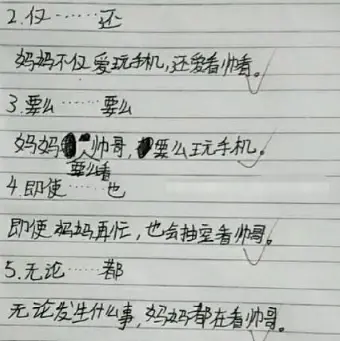 2.仅……还
妈妈不仅爱玩手机,还爱看帅哥。
3.要么……要么
妈妈要么看帅哥,要么玩手机。
4.即使……也
即使妈妈再忙,也会抽空看帅哥。
5.无论……都
无论发生什么事,妈妈都在看帅哥。